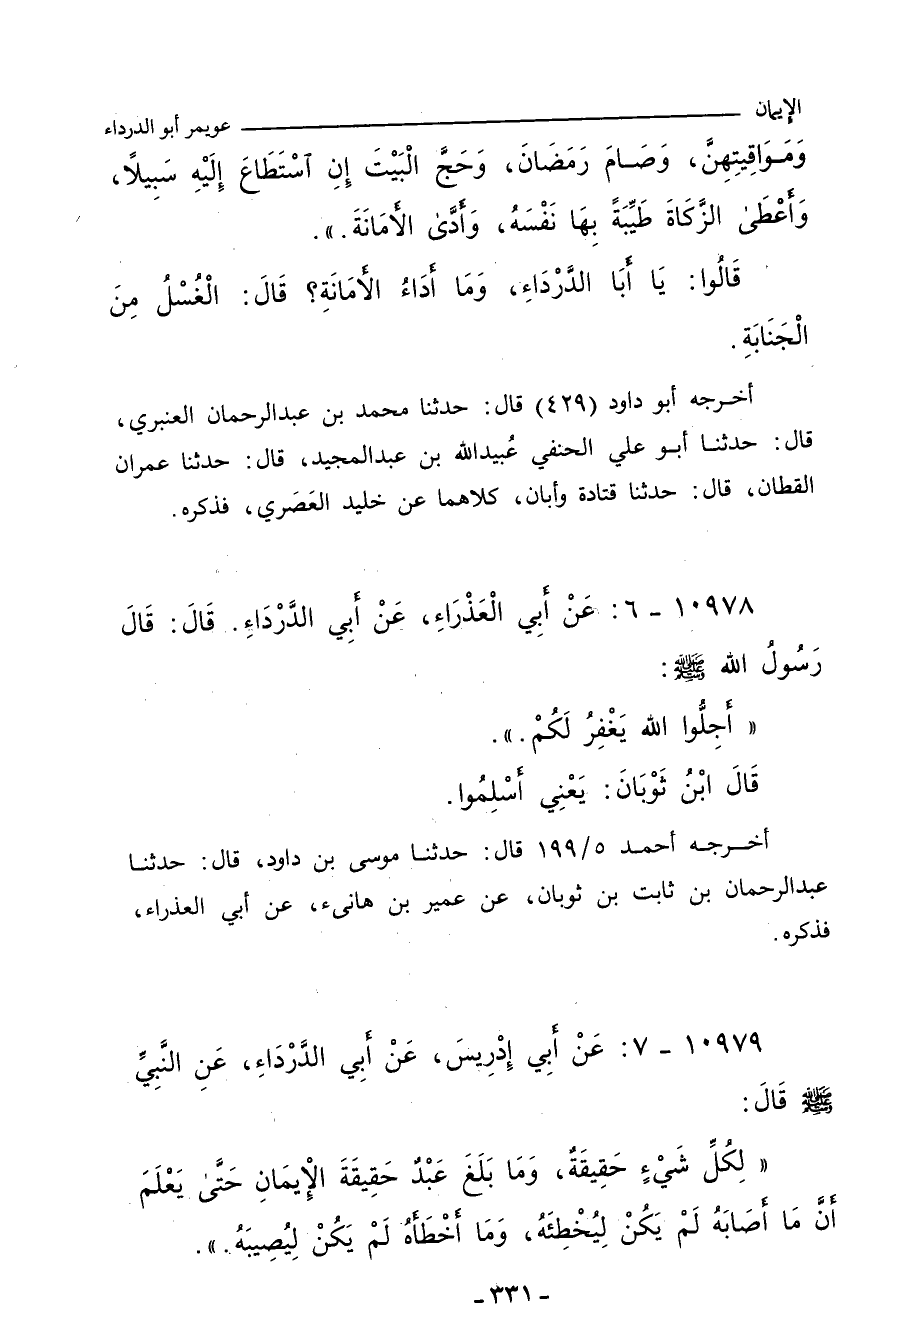 الإيمان ــــــــــــــــ عويمر أبو الدرداء
وَمَوَاقِيتِهِنَّ، وَصَامَ رَمَضَانَ، وَحَجَّ الْبَيْتَ إِنِ ٱسْتَطَاعَ إِلَيْهِ سَبِيلًا،
وَأَعْطَىٰ الزَّكَاةَ طَيِّبَةً بِهَا نَفْسَهُ، وَأَدَّىٰ الأَمَانَةَ.».
قَالُوا: يَا أَبَا الدَّرْدَاءِ، وَمَا أَدَاءُ الأَمَانَةِ؟ قَالَ: الْغُسْلُ مِنَ
الْجَنَابَةِ.
أخرجه أبو داود (٤٢٩) قال: حدثنا محمد بن عبدالرحمان العنبري،
قال: حدثنا أبو علي الحنفي عُبيدالله بن عبدالمجيد، قال: حدثنا عمران
القطان، قال: حدثنا قتادة وأبان، كلاهما عن خليد العَصَري، فذكره.
١٠٩٧٨ ـ ٦: عَنْ أَبِي الْعَذْرَاءِ، عَنْ أَبِي الدَّرْدَاءِ. قَالَ: قَالَ
رَسُولُ الله ﷺ:
« أَجِلُّوا الله يَغْفِرُ لَكُمْ.».
قَالَ ابْنُ ثَوْبَانَ: يَعْنِي أَسْلِمُوا.
أخرجه أحمد ١٩٩/٥ قال: حدثنا موسى بن داود، قال: حدثنا
عبدالرحمان بن ثابت بن ثوبان، عن عمير بن هانىء، عن أبي العذراء،
فذكره.
١٠٩٧٩ ـ ٧: عَنْ أَبِي إِدْرِيسَ، عَنْ أَبِي الدَّرْدَاءِ، عَنِ النَّبِيِّ
ﷺ قَالَ:
« لِكُلِّ شَيْءٍ حَقِيقَةٌ، وَمَا بَلَغَ عَبْدٌ حَقِيقَةَ الْإِيمَانِ حَتَّىٰ يَعْلَمَ
أَنَّ مَا أَصَابَهُ لَمْ يَكُنْ لِيُخْطِئَهُ، وَمَا أَخْطَأَهُ لَمْ يَكُنْ لِيُصِيبَهُ.».
ـ ٣٣١ ـ